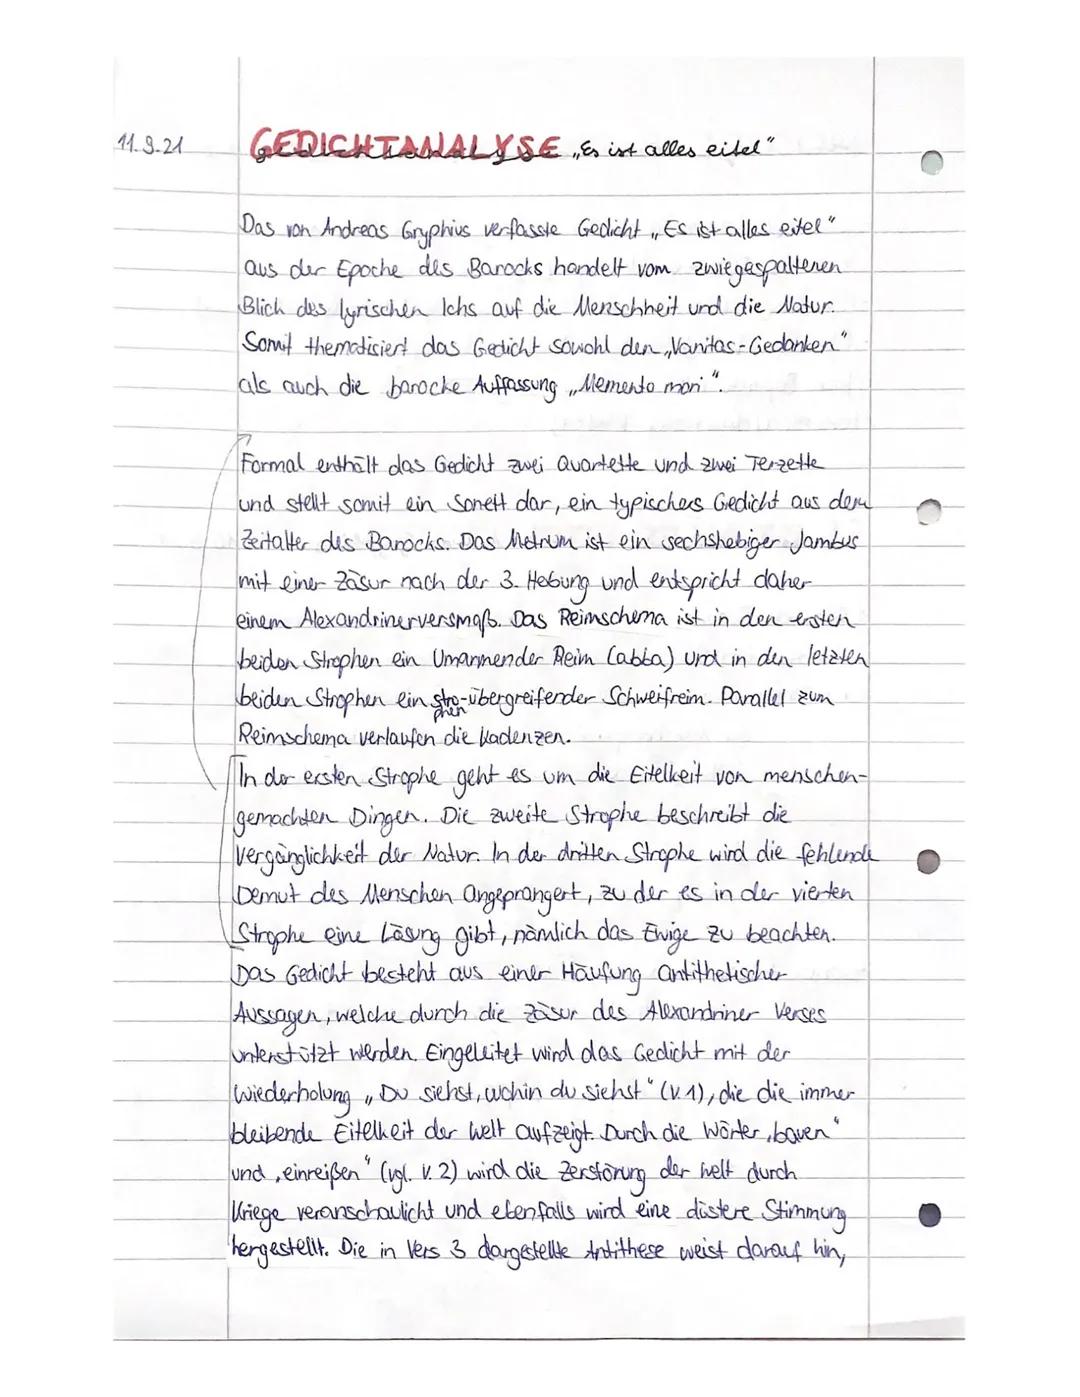 11.9.21
GEDICHTANALYSE „Es ist alles eitel"
Das von Andreas Gryphius verfasste Gedicht „Es ist alles eitel"
aus der Epoche des Barocks handelt vom zwiegespaltenen
Blick des lyrischen Ichs auf die Menschheit und die Natur.
Somit thematisiert das Gedicht sowohl den „Vanitas-Gedanken"
als auch die barocke Auffassung „Memento mori".
Formal enthält das Gedicht zwei Quartette und zwei Terzette
und stellt somit ein Sonett dar, ein typisches Gedicht aus dem
Zeitalter des Barocks. Das Metrum ist ein sechshebiger Jambus
mit einer Zäsur nach der 3. Hebung und entspricht daher
einem Alexandrinerversmaß. Das Reimschema ist in den ersten
beiden Strophen ein Umarmender Reim (abba) und in den letzten
beiden Strophen ein stro-übergreifender Schweifreim. Parallel zum
phen
Reimschema verlaufen die Kadenzen.
In der ersten Strophe geht es um die Eitelkeit von menschen-
gemachten Dingen. Die zweite Strophe beschreibt die
Vergänglichkeit der Natur. In der dritten Strophe wird die fehlende
Demut des Menschen Angeprangert, zu der es in der vierten
Strophe eine Lösung gibt, nämlich das Ewige zu beachten.
Das Gedicht besteht aus einer Häufung antithetischer
Aussagen, welche durch die Zäsur des Alexandriner Verses
unterstützt werden. Eingeleitet wird das Gedicht mit der
Wiederholung „Du siehst, wohin du siehst" (V.1), die die immer
bleibende Eitelkeit der Welt aufzeigt. Durch die Wörter „bauen"
und „einreißen" (vgl. V. 2) wird die Zerstörung der Welt durch
Kriege veranschaulicht und ebenfalls wird eine düstere Stimmung
hergestellt. Die in Vers 3 dargestellte Antithese weist darauf hin,